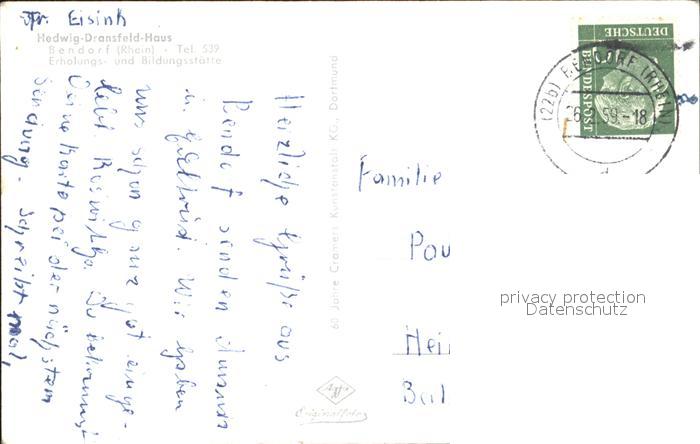 Hedwig-Dransfeld-Haus
Bendorf (Rhein) - Tel. 539
Erholungs- und Bildungsstätte
Herzliche Grüße aus
Bendorf senden
in Wir haben
uns schon ganz gut einge-
lebt. Du bekommst
Deine Karte bei der nächsten
Sendung. Schreibt mal,
Eisink
60 Jahre Cramers Kunstanstalt KG., Dortmund
Familie
Pau
Hei
Agfa
Originalfoto
DEUTSCHE
BUNDESPOST
(22b) BENDORF (RHEIN)
59-18
privacy protection
Datenschutz